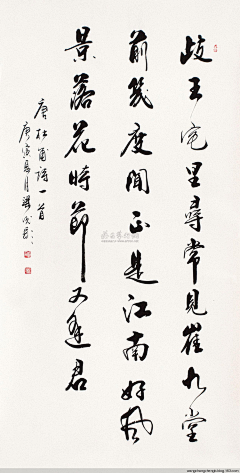 岐王宅里尋常見崔九堂
前幾度聞正是江南好風
景落花時節又逢君
唐杜甫詩一首